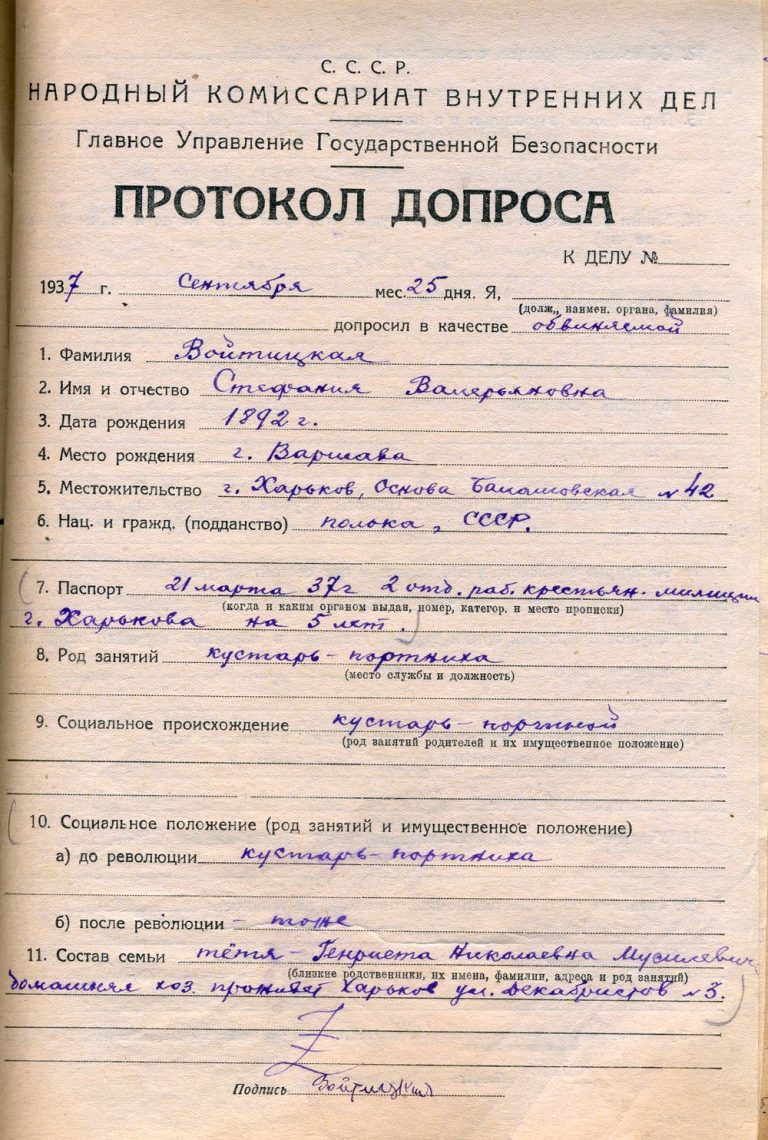 С. С. С. Р.
НАРОДНЫЙ КОМИССАРИАТ ВНУТРЕННИХ ДЕЛ
Главное Управление Государственной Безопасности
ПРОТОКОЛ ДОПРОСА
К ДЕЛУ №
1937 г. Сентября мес. 25 дня. Я,
(долж., наимен. органа, фамилия)
допросил в качестве обвиняемой
1. Фамилия Войтицкая
2. Имя и отчество Стефания Валерьяновна
3. Дата рождения 1892 г.
4. Место рождения г. Варшава
5. Местожительство г. Харьков, Основа Балашовская № 42
6. Нац. и гражд. (подданство) полька, СССР.
7. Паспорт 21 марта 37 г 2 отд. раб. крестьян. милиции
(когда и каким органом выдан, номер, категор. и место прописки)
г. Харькова на 5 лет.
8. Род занятий кустарь-портниха
(место службы и должность)
9. Социальное происхождение кустарь-портной
(род занятий родителей и их имущественное положение)
10. Социальное положение (род занятий и имущественное положение)
а) до революции кустарь-портниха
б) после революции - тоже
11. Состав семьи тётя - Генриета Николаевна
(близкие родственники, их имена, фамилии, адреса и род занятий)
домашняя хоз. проживает Харьков ул. Декабристов № 3.
Подпись